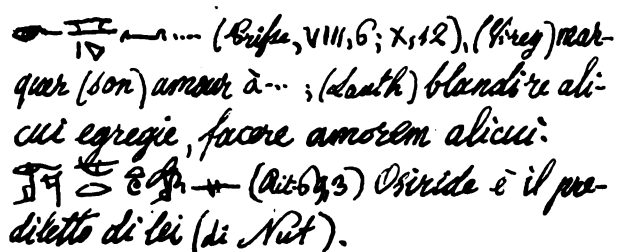 .... (Prisse, VIII, 6; X, 12), (Virey) mar-
quer (son) amour à... ; (Lauth) blandire ali-
cui egregie, facere amorem alicui.
(Rit. 69,3) Osiride è il pre-
diletto di lei (di Nut).